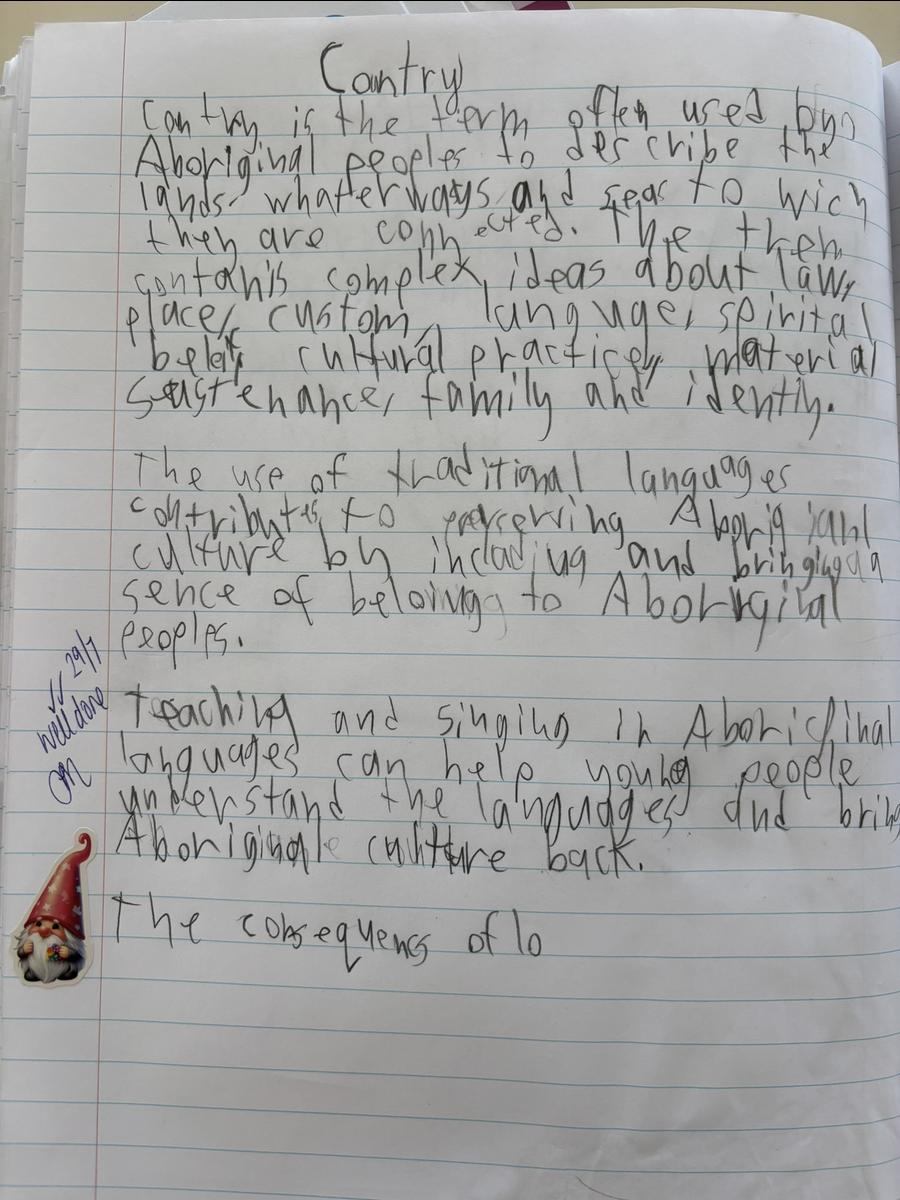 Country
Contry is the term often used by
Aboriginal peoples to describe the
lands whaterways and seas to wich
they are connected. The them
contanis complex ideas about law,
place, custom, languge, spirital
beleif, cultural practice, material
sustenance, family and idently.
The use of traditional languages
contributes to preserving Aborigianl
culture by including and bringing a
sence of beloingg to Aborirginal
peoples.
teaching and singing in Aboriginal
languages can help young people
understand the languages and bring
Aboriginale culture back.
The consequencs of lo
√√ 29/7
well done